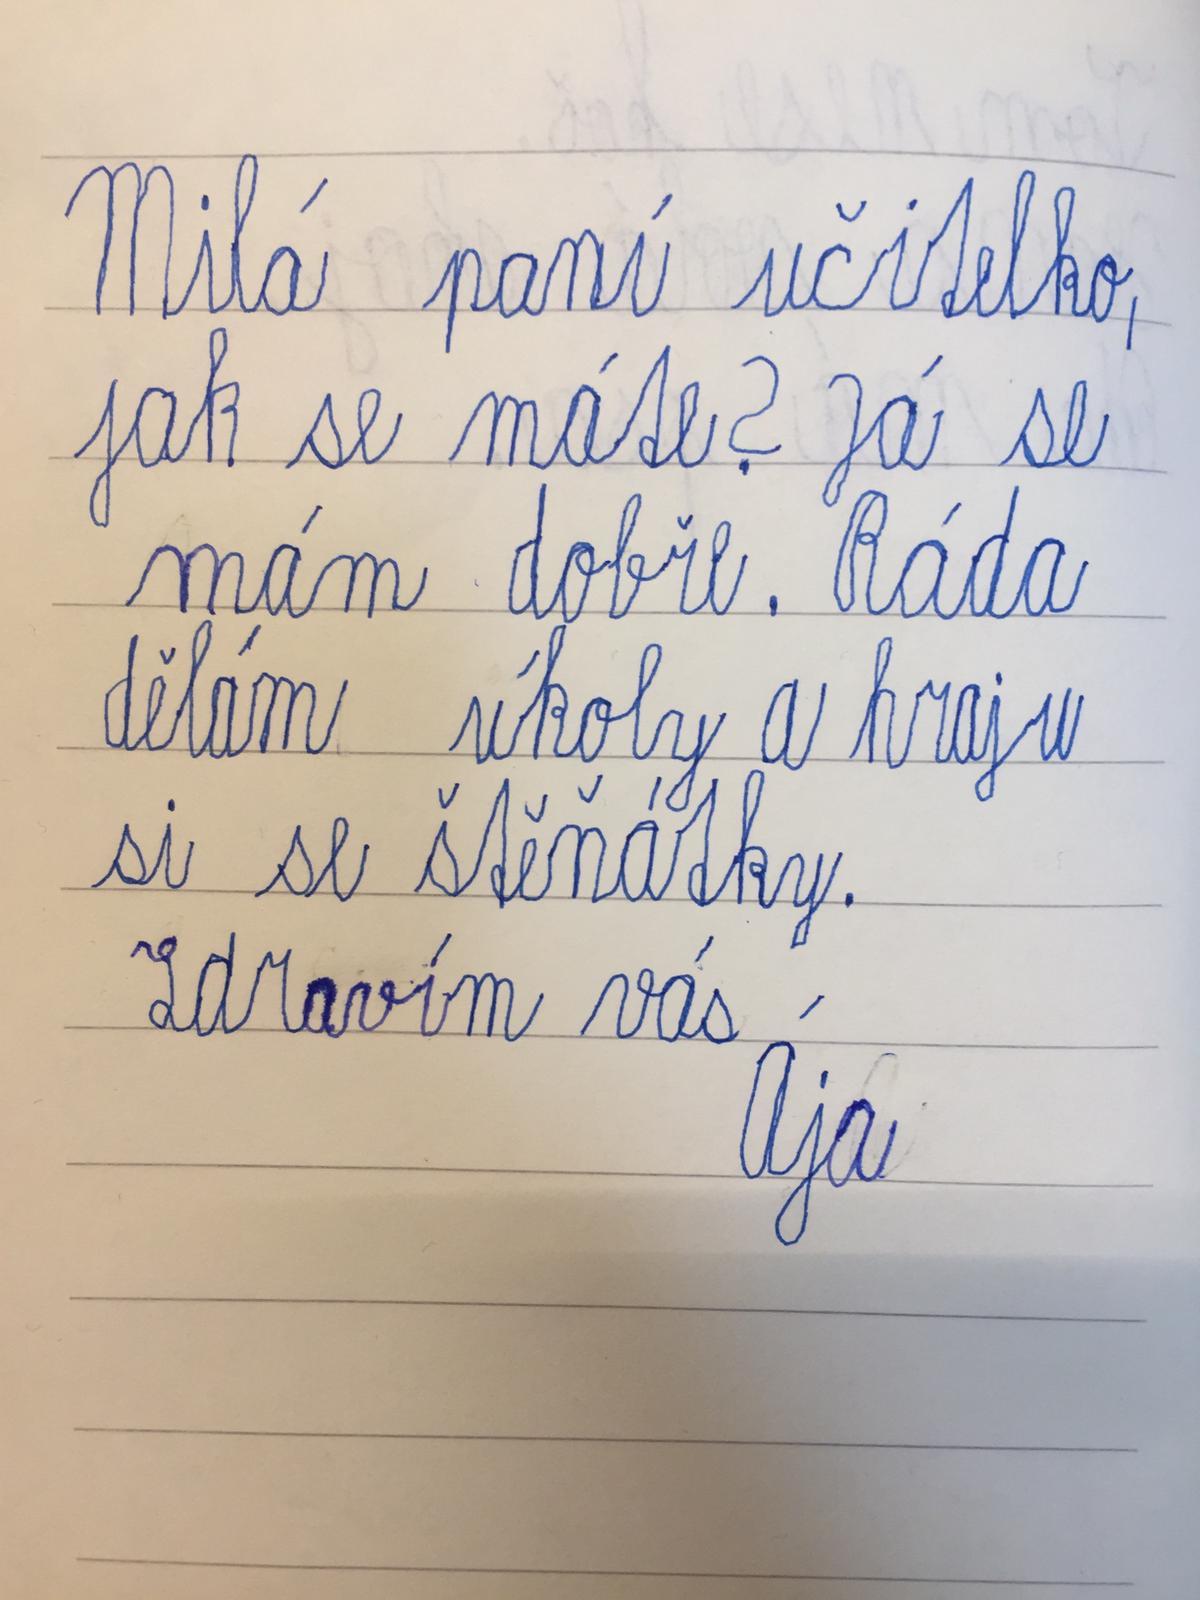 Milá paní učitelko,
jak se máte? Já se
mám dobře. Ráda
dělám úkoly a hraju
si se štěňátky.
Zdravím vás
Ája